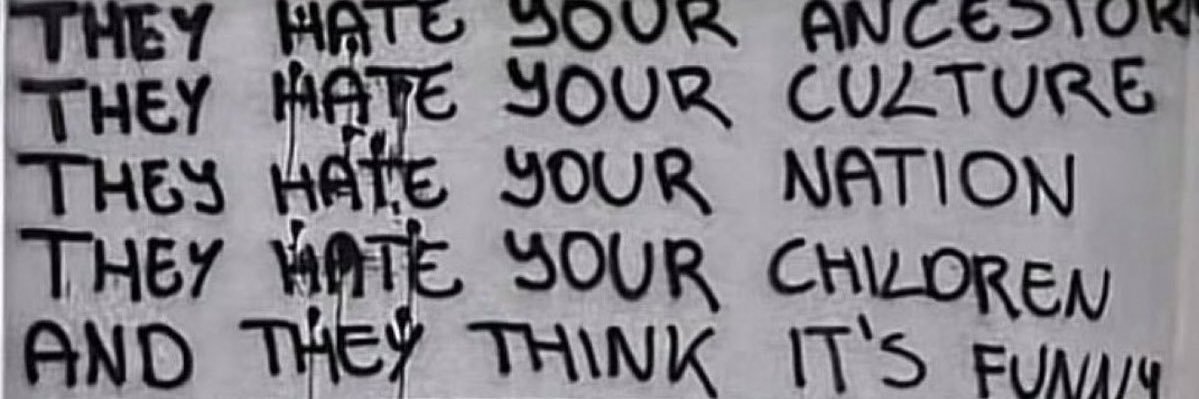 THEY HATE YOUR ANCESTOR
THEY HATE YOUR CULTURE
THEY HATE YOUR NATION
THEY HATE YOUR CHILDREN
AND THEY THINK IT'S FUNNY